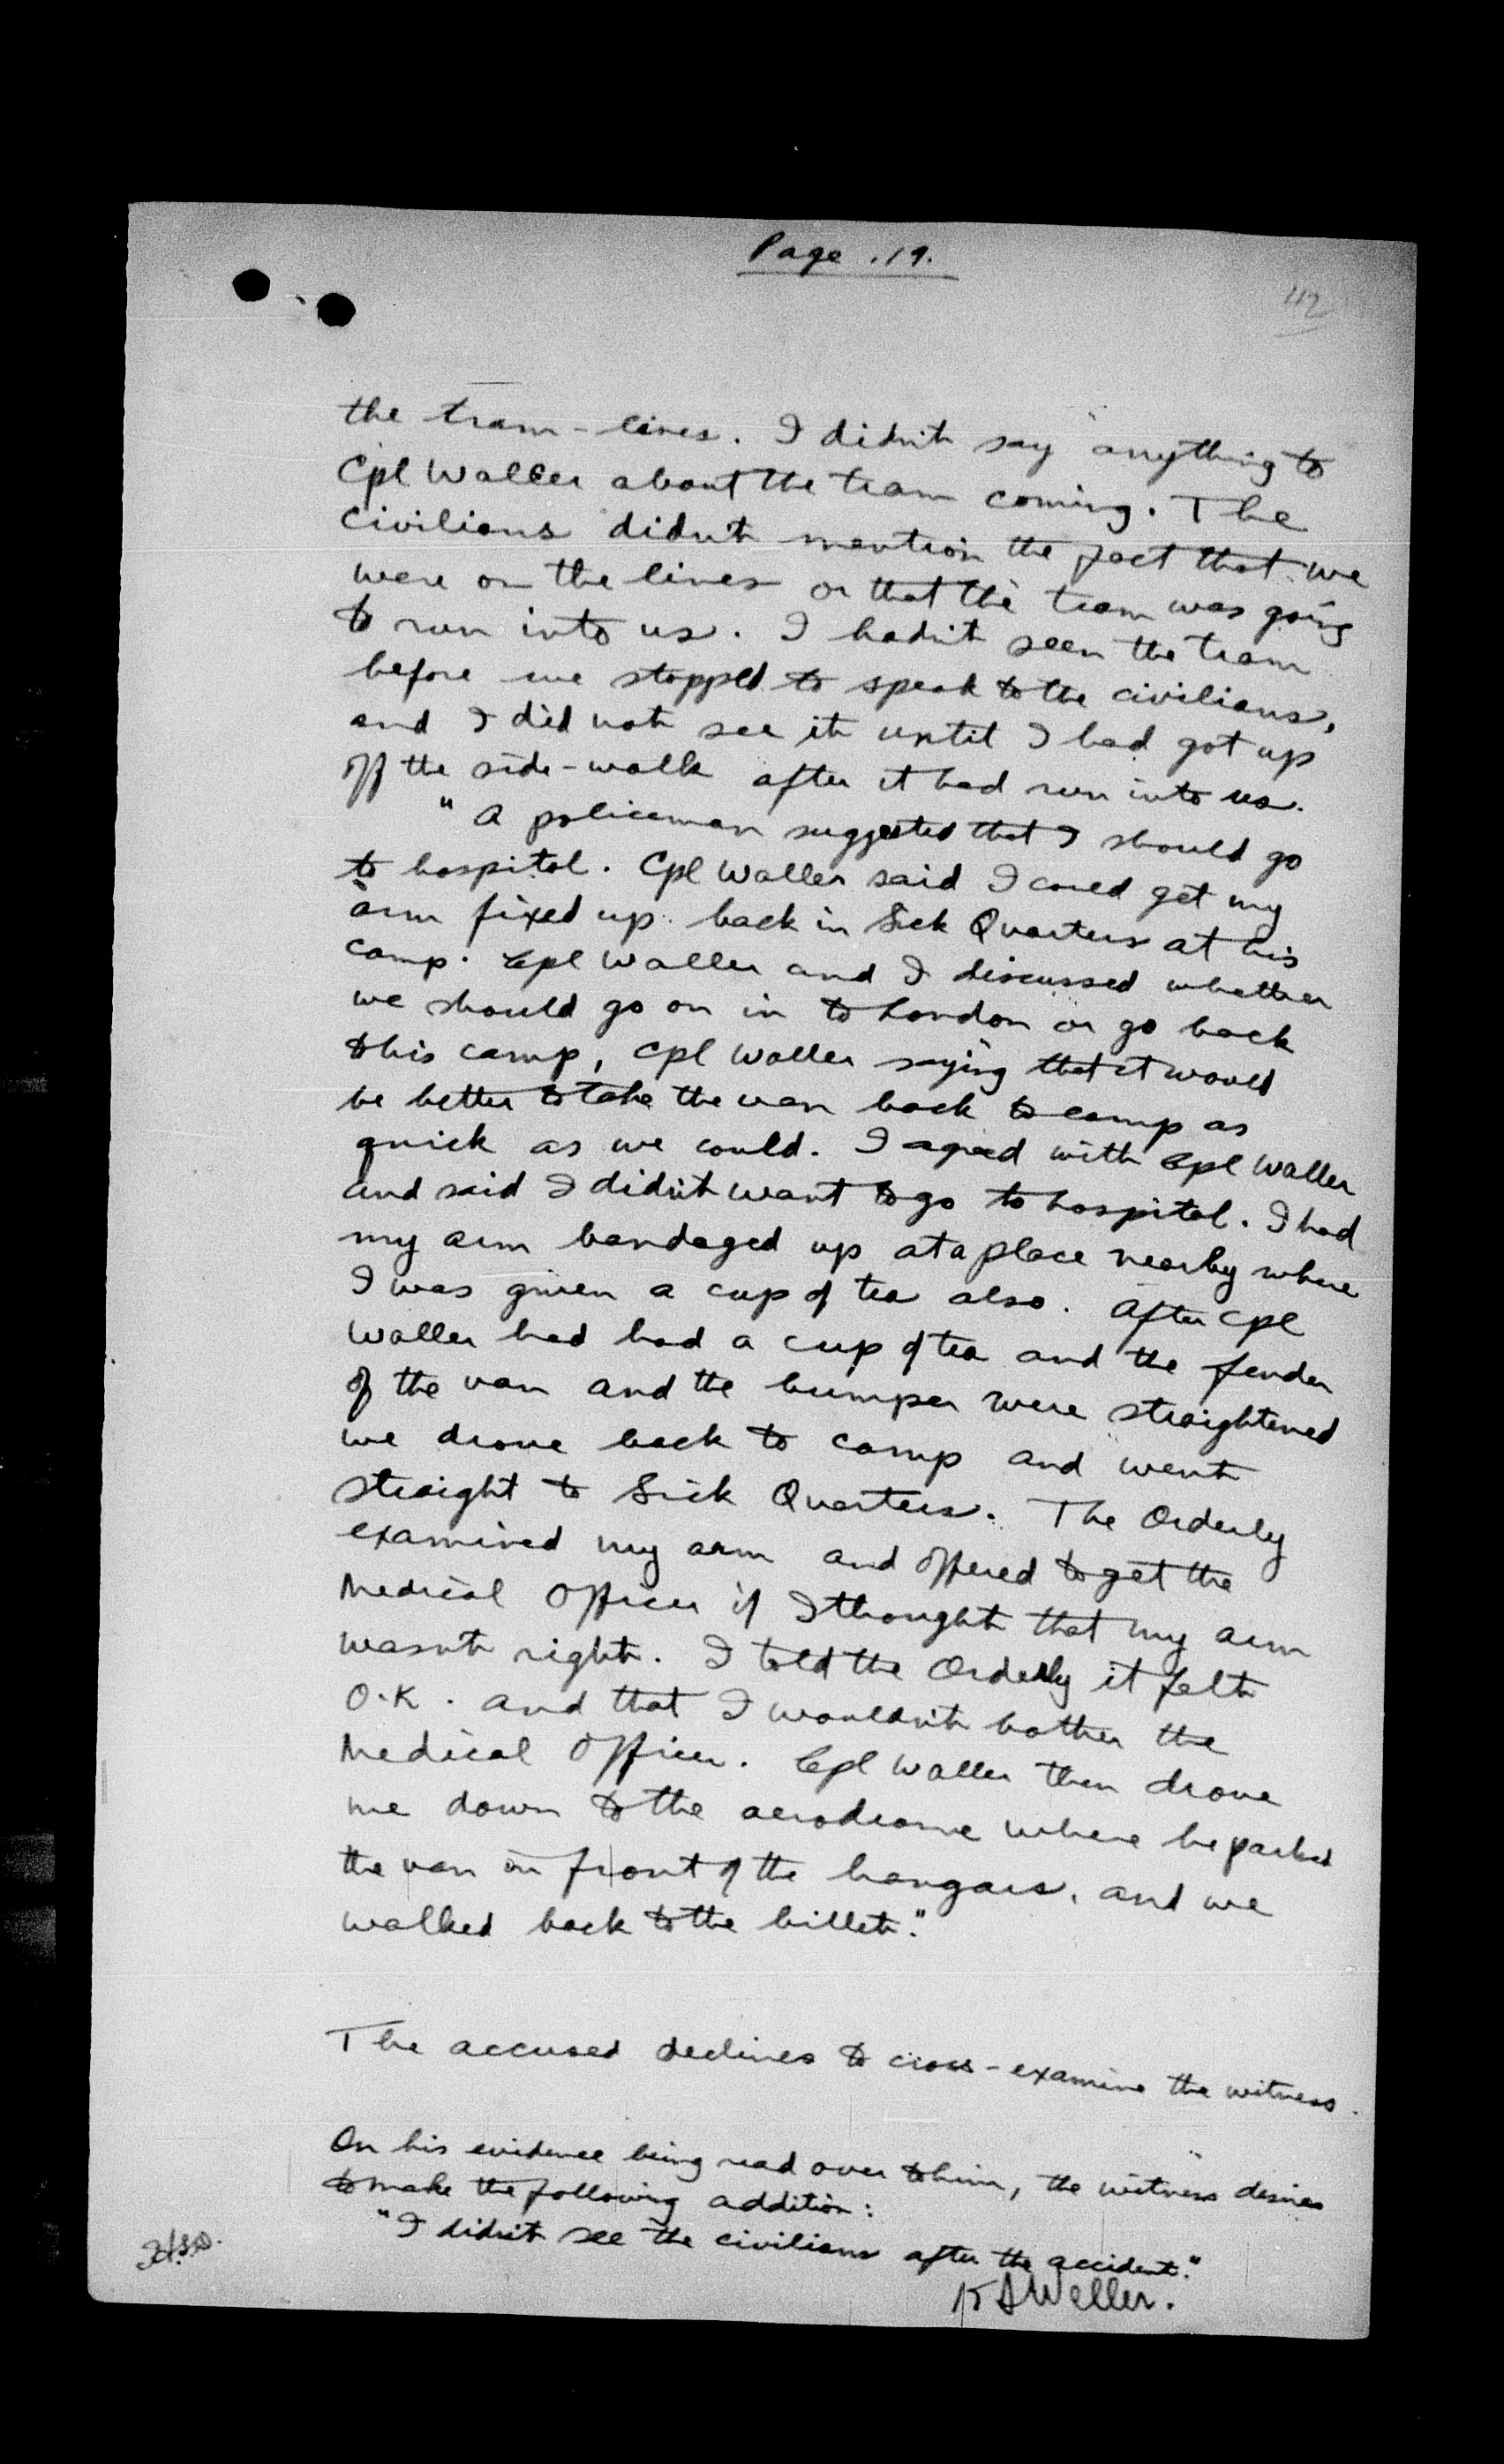 Page .19.
42
the tram-lines. I didn't say anything to
Cpl Waller about the tram coming. The
civilians didn't mention the fact that we
were on the lines or that the tram was going
to run into us. I hadn't seen the tram
before we stopped to speak to the civilians,
and I did not see it until I had got up
off the side-walk after it had run into us.
"A policeman suggested that I should go
to hospital. Cpl Waller said I could get my
arm fixed up back in Sick Quarters at his
camp. Cpl Waller and I discussed whether
we should go on in to London or go back
to his camp, Cpl Waller saying that it would
be better to take the van back to camp as
quick as we could. I agreed with Cpl Waller
and said I didn't want to go to hospital. I had
my arm bandaged up at a place nearby where
I was given a cup of tea also. After Cpl
Waller had had a cup of tea and the fender
of the van and the bumper were straightened
we drove back to camp and went
straight to Sick Quarters. The Orderly
examined my arm and offered to get the
Medical Officer if I thought that my arm
wasn't right. I told the Orderly it felt
O.K. and that I wouldn't bother the
Medical Officer. Cpl Waller then drove
me down to the aerodrome where he parked
the van in front of the hangars, and we
walked back to the billet."
The accused declines to cross-examine the witness.
On his evidence being read over to him, the witness desires
to make the following addition:
"I didn't see the civilians after the accident."
Weller.